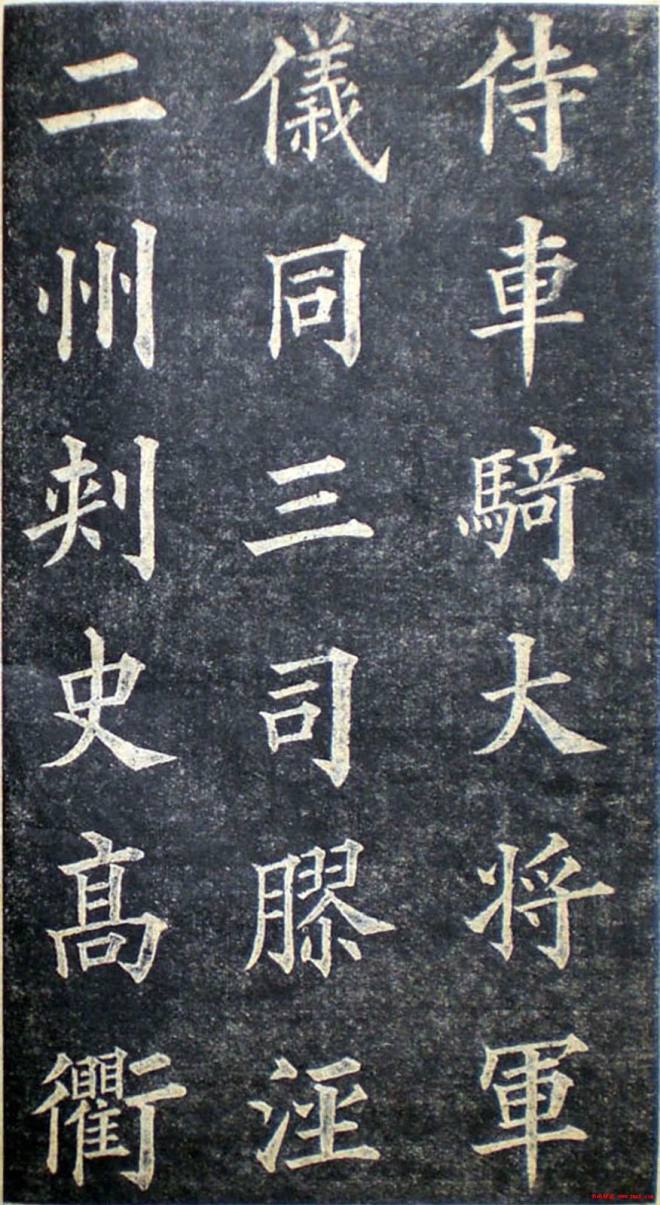 侍車騎大将軍
儀同三司膠涇
二州刾史髙衢